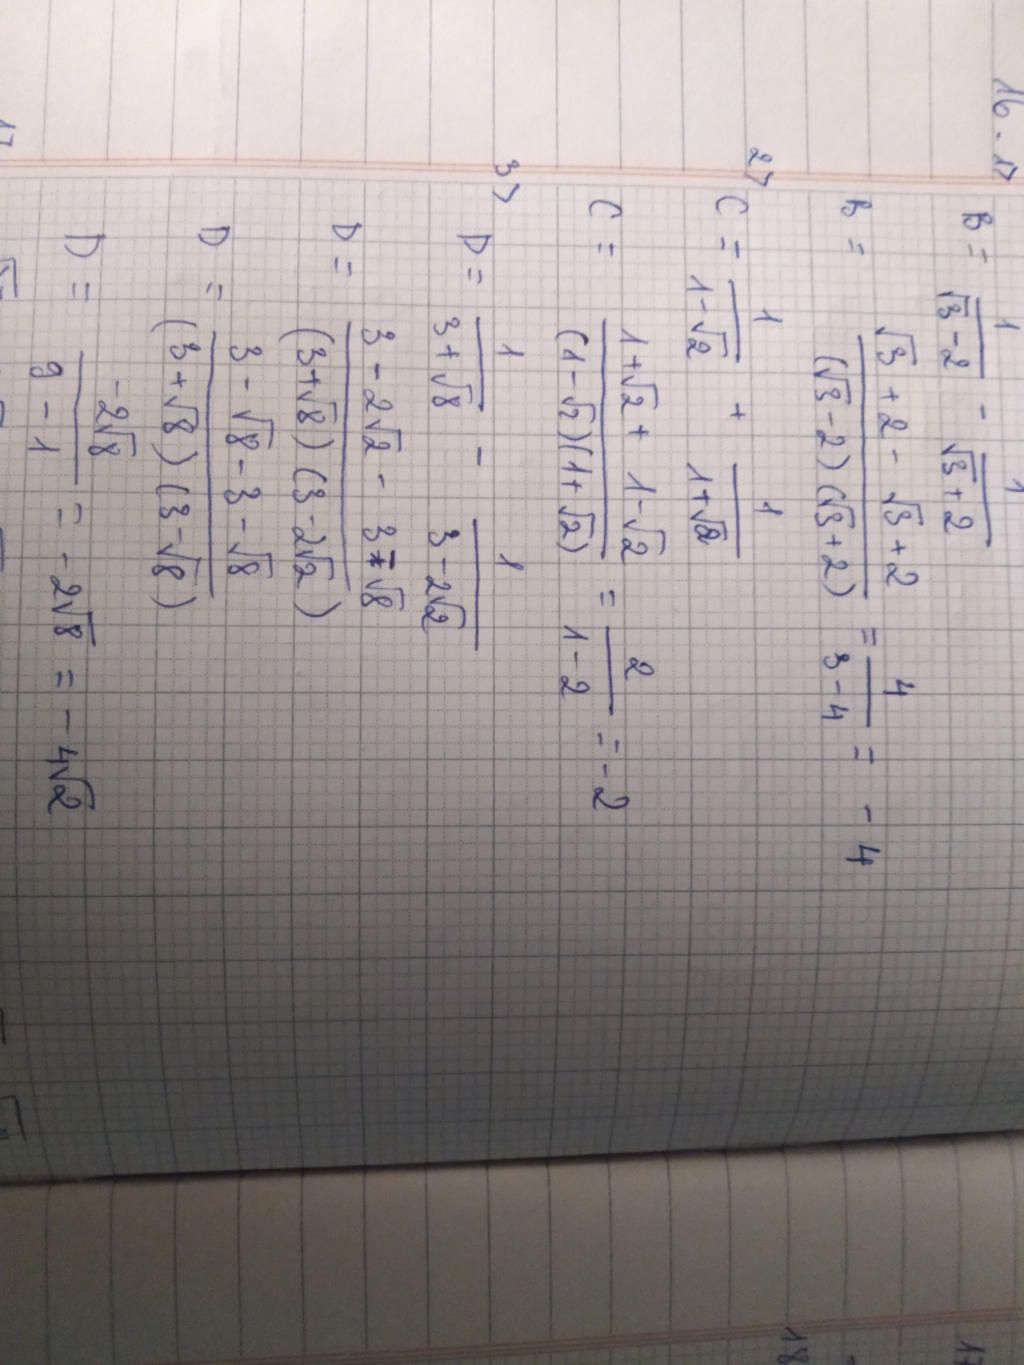 16. 1>
B = 1/(√3-2) - 1/(√3+2)
B = (√3+2-√3+2)/((√3-2)(√3+2)) = 4/(3-4) = -4
2>
C = 1/(1-√2) + 1/(1+√2)
C = (1+√2+1-√2)/((1-√2)(1+√2)) = 2/(1-2) = -2
3>
D = 1/(3+√8) - 1/(3-2√2)
D = (3-2√2-3-√8)/((3+√8)(3-2√2))
D = (3-√8-3-√8)/((3+√8)(3-√8))
D = -2√8/(9-1) = -2√8 = -4√2
17
18